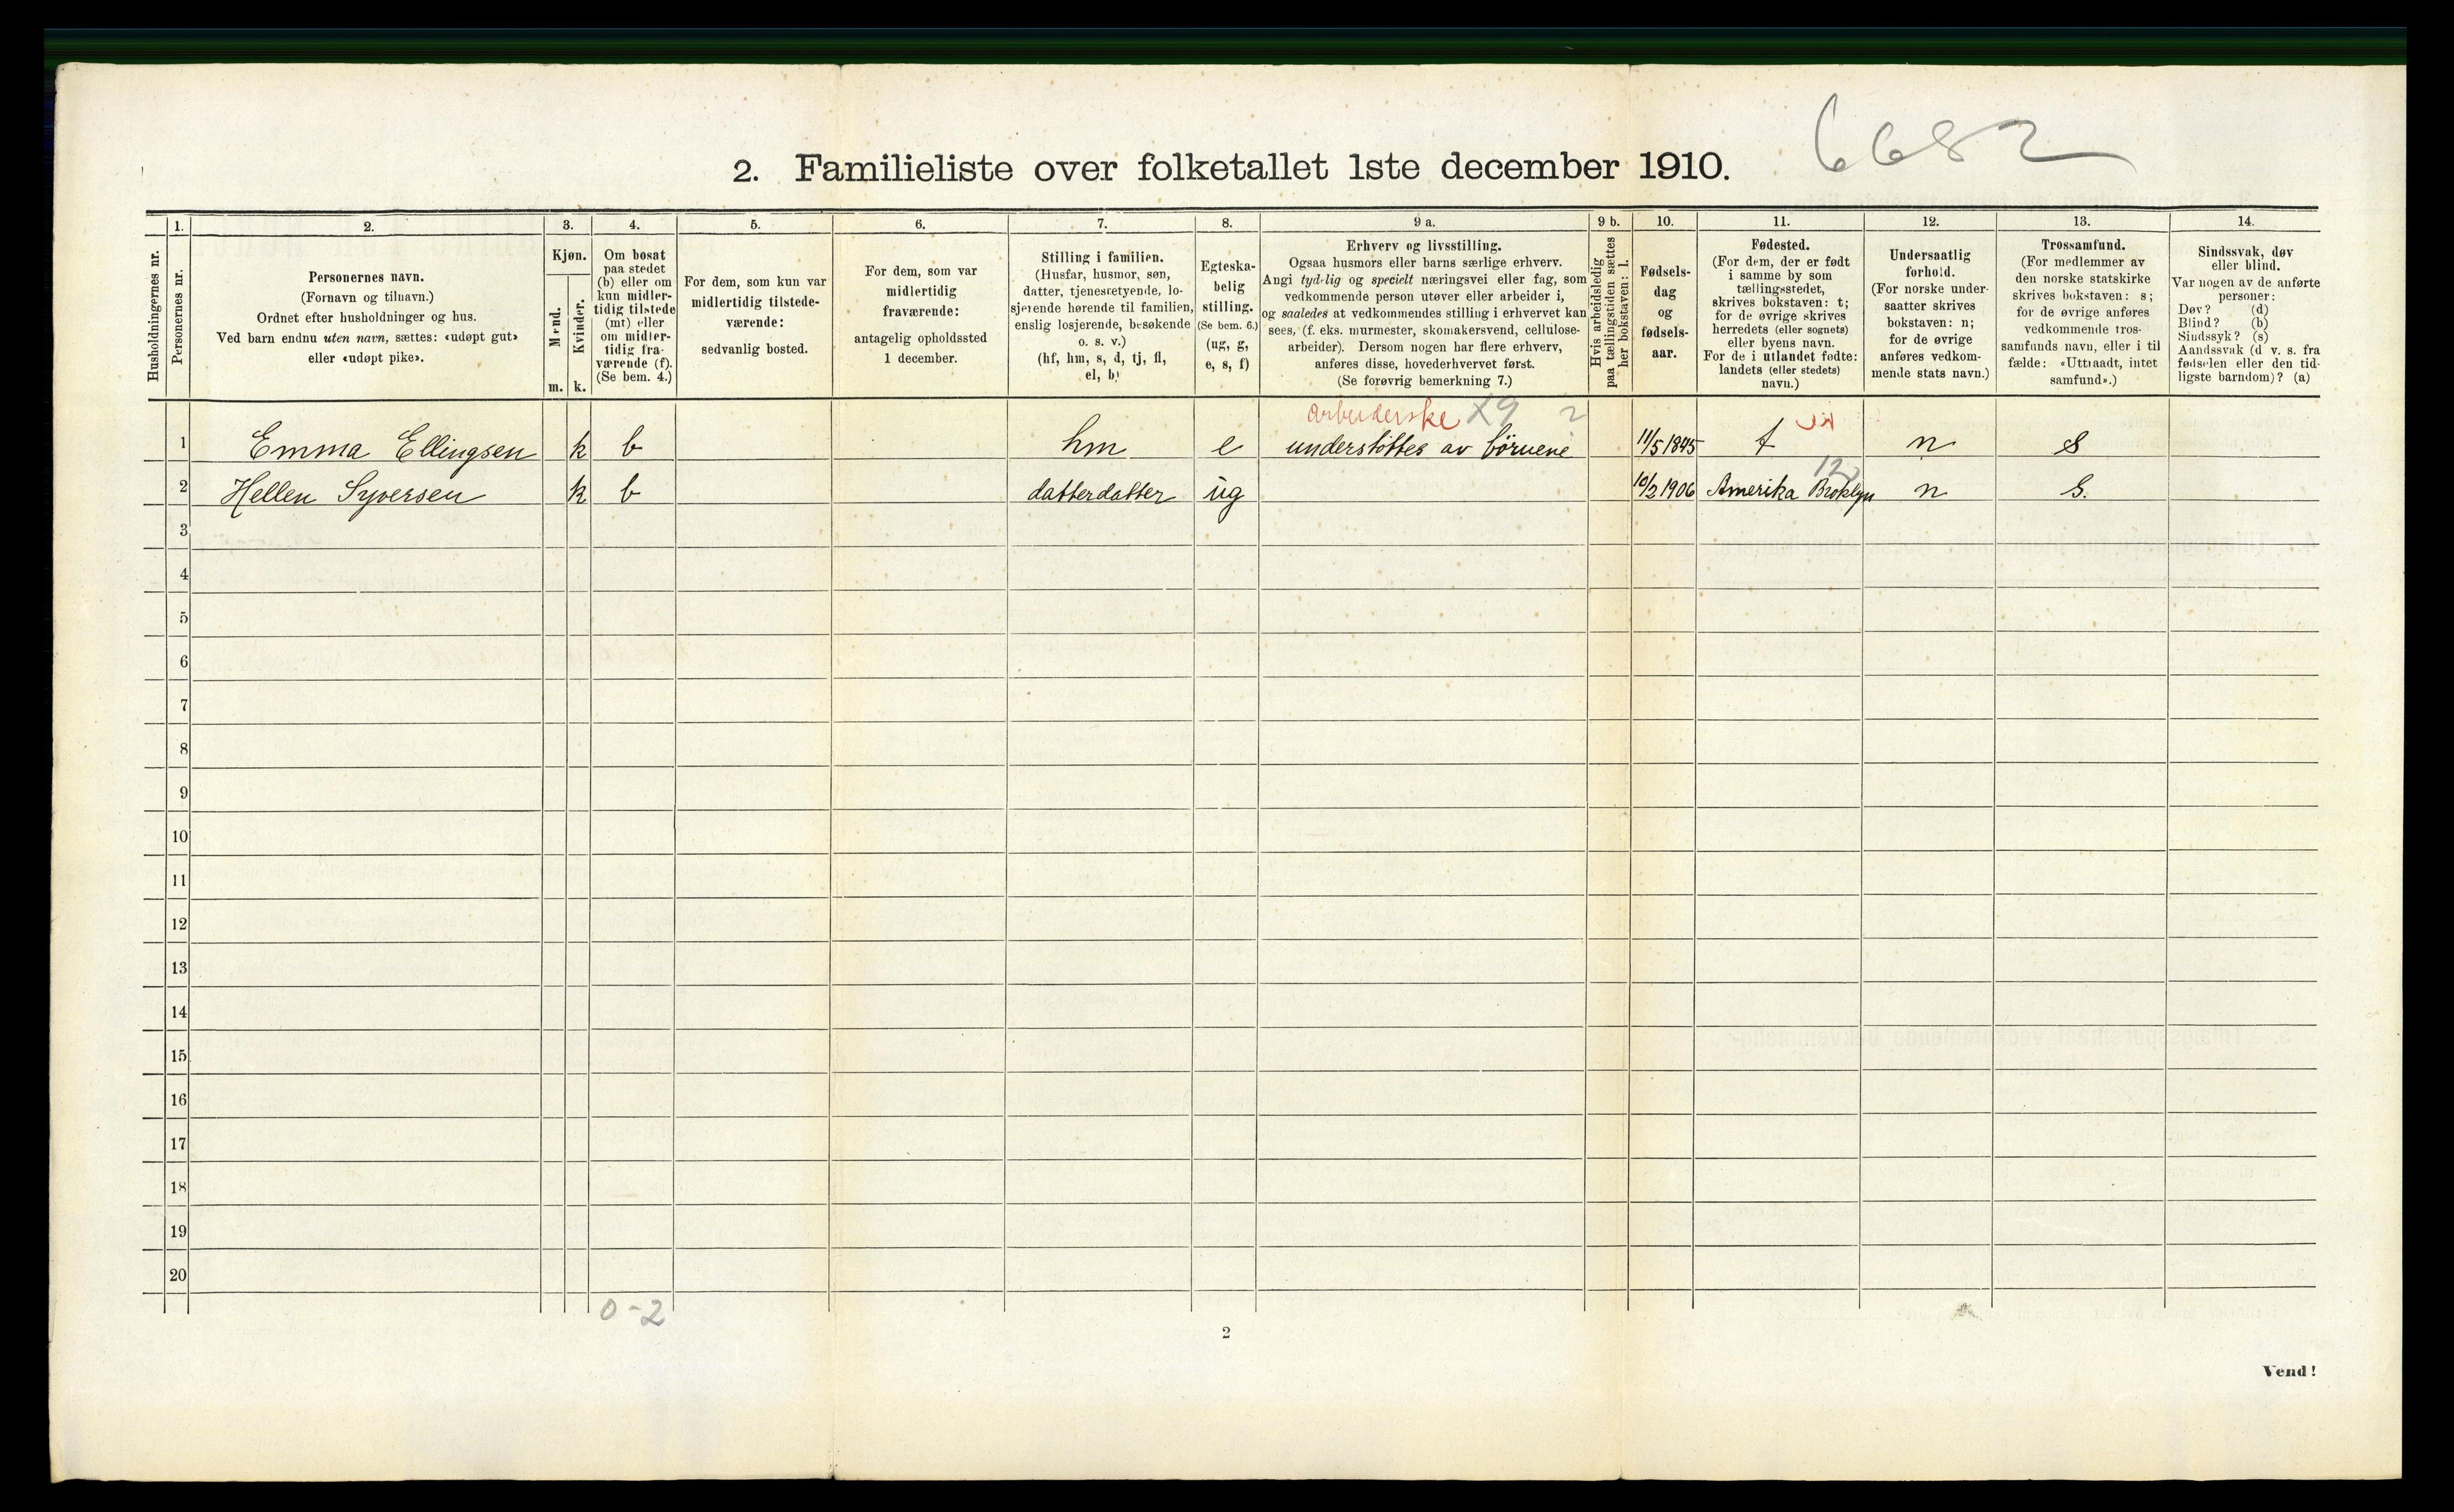 6682
2. Familieliste over folketallet 1ste december 1910.
Husholdningernes nr.
1.
Personernes nr.
2.
Personernes navn.
(Fornavn og tilnavn.)
Ordnet efter husholdninger og hus.
Ved barn endnu uten navn, sættes: «udøpt gut»
eller «udøpt pike».
3.
Kjøn.
Mænd.
m.
Kvinder.
k.
4.
Om bosat
paa stedet
(b) eller om
kun midler-
tidig tilstede
(mt) eller
om midler-
tidig fra-
værende (f).
(Se bem. 4.)
5.
For dem, som kun var
midlertidig tilstede-
værende:
sedvanlig bosted.
6.
For dem, som var
midlertidig
fraværende:
antagelig opholdssted
1 december.
7.
Stilling i familien.
(Husfar, husmor, søn,
datter, tjenestetyende, lo-
sjerende hørende til familien,
enslig losjerende, besøkende
o. s. v.)
(hf, hm, s, d, tj, fl,
el, b)
8.
Egteska-
belig
stilling.
(Se bem. 6.)
(ug, g,
e, s, f)
9 a.
Erhverv og livsstilling.
Ogsaa husmors eller barns særlige erhverv.
Angi tydelig og specielt næringsvei eller fag, som
vedkommende person utøver eller arbeider i,
og saaledes at vedkommendes stilling i erhvervet kan
sees, (f. eks. murmester, skomakersvend, cellulose-
arbeider). Dersom nogen har flere erhverv,
anføres disse, hovederhvervet først.
(Se forøvrig bemerkning 7.)
9 b.
Hvis arbeidsledig
paa tællingstiden sættes
her bokstaven: l.
10.
Fødsels-
dag
og
fødsels-
aar.
11.
Fødested.
(For dem, der er født
i samme by som
tællingsstedet,
skrives bokstaven: t;
for de øvrige skrives
herredets (eller sognets)
eller byens navn.
For de i utlandet fødte:
landets (eller stedets)
navn.)
12.
Undersaatlig
forhold.
(For norske under-
saatter skrives
bokstaven: n;
for de øvrige
anføres vedkom-
mende stats navn.)
13.
Trossamfund.
(For medlemmer av
den norske statskirke
skrives bokstaven: s;
for de øvrige anføres
vedkommende tros-
samfunds navn, eller i til
fælde: «Uttraadt, intet
samfund».)
14.
Sindssvak, døv
eller blind.
Var nogen av de anførte
personer:
Døv? (d)
Blind? (b)
Sindssyk? (s)
Aandssvak (d v. s. fra
fødselen eller den tid-
ligste barndom)? (a)
arbeiderske X9 2
1 Emma Ellingsen k b hm e understöttes av börnene 11/5 1845 t n s
12
2 Hellen Syversen k b datterdatter ug 10/2 1906 Amerika Broklyn n S.
3
4
5
6
7
8
9
10
11
12
13
14
15
16
17
18
19
20
0-2
2
Vend!